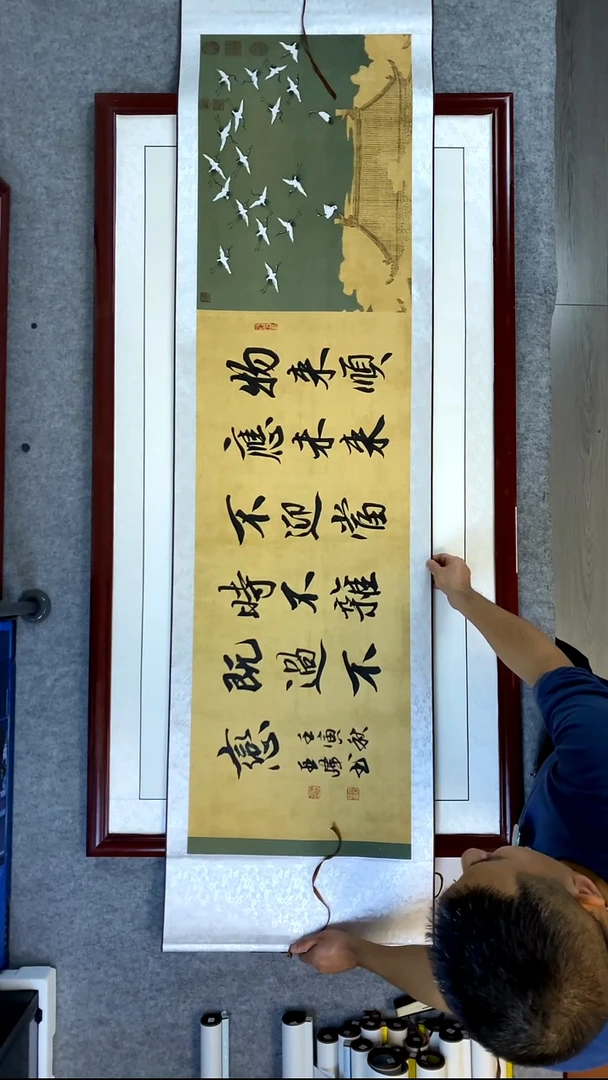 物來順
應未來
不迎當
時不雜
既過不
戀
壬寅秋